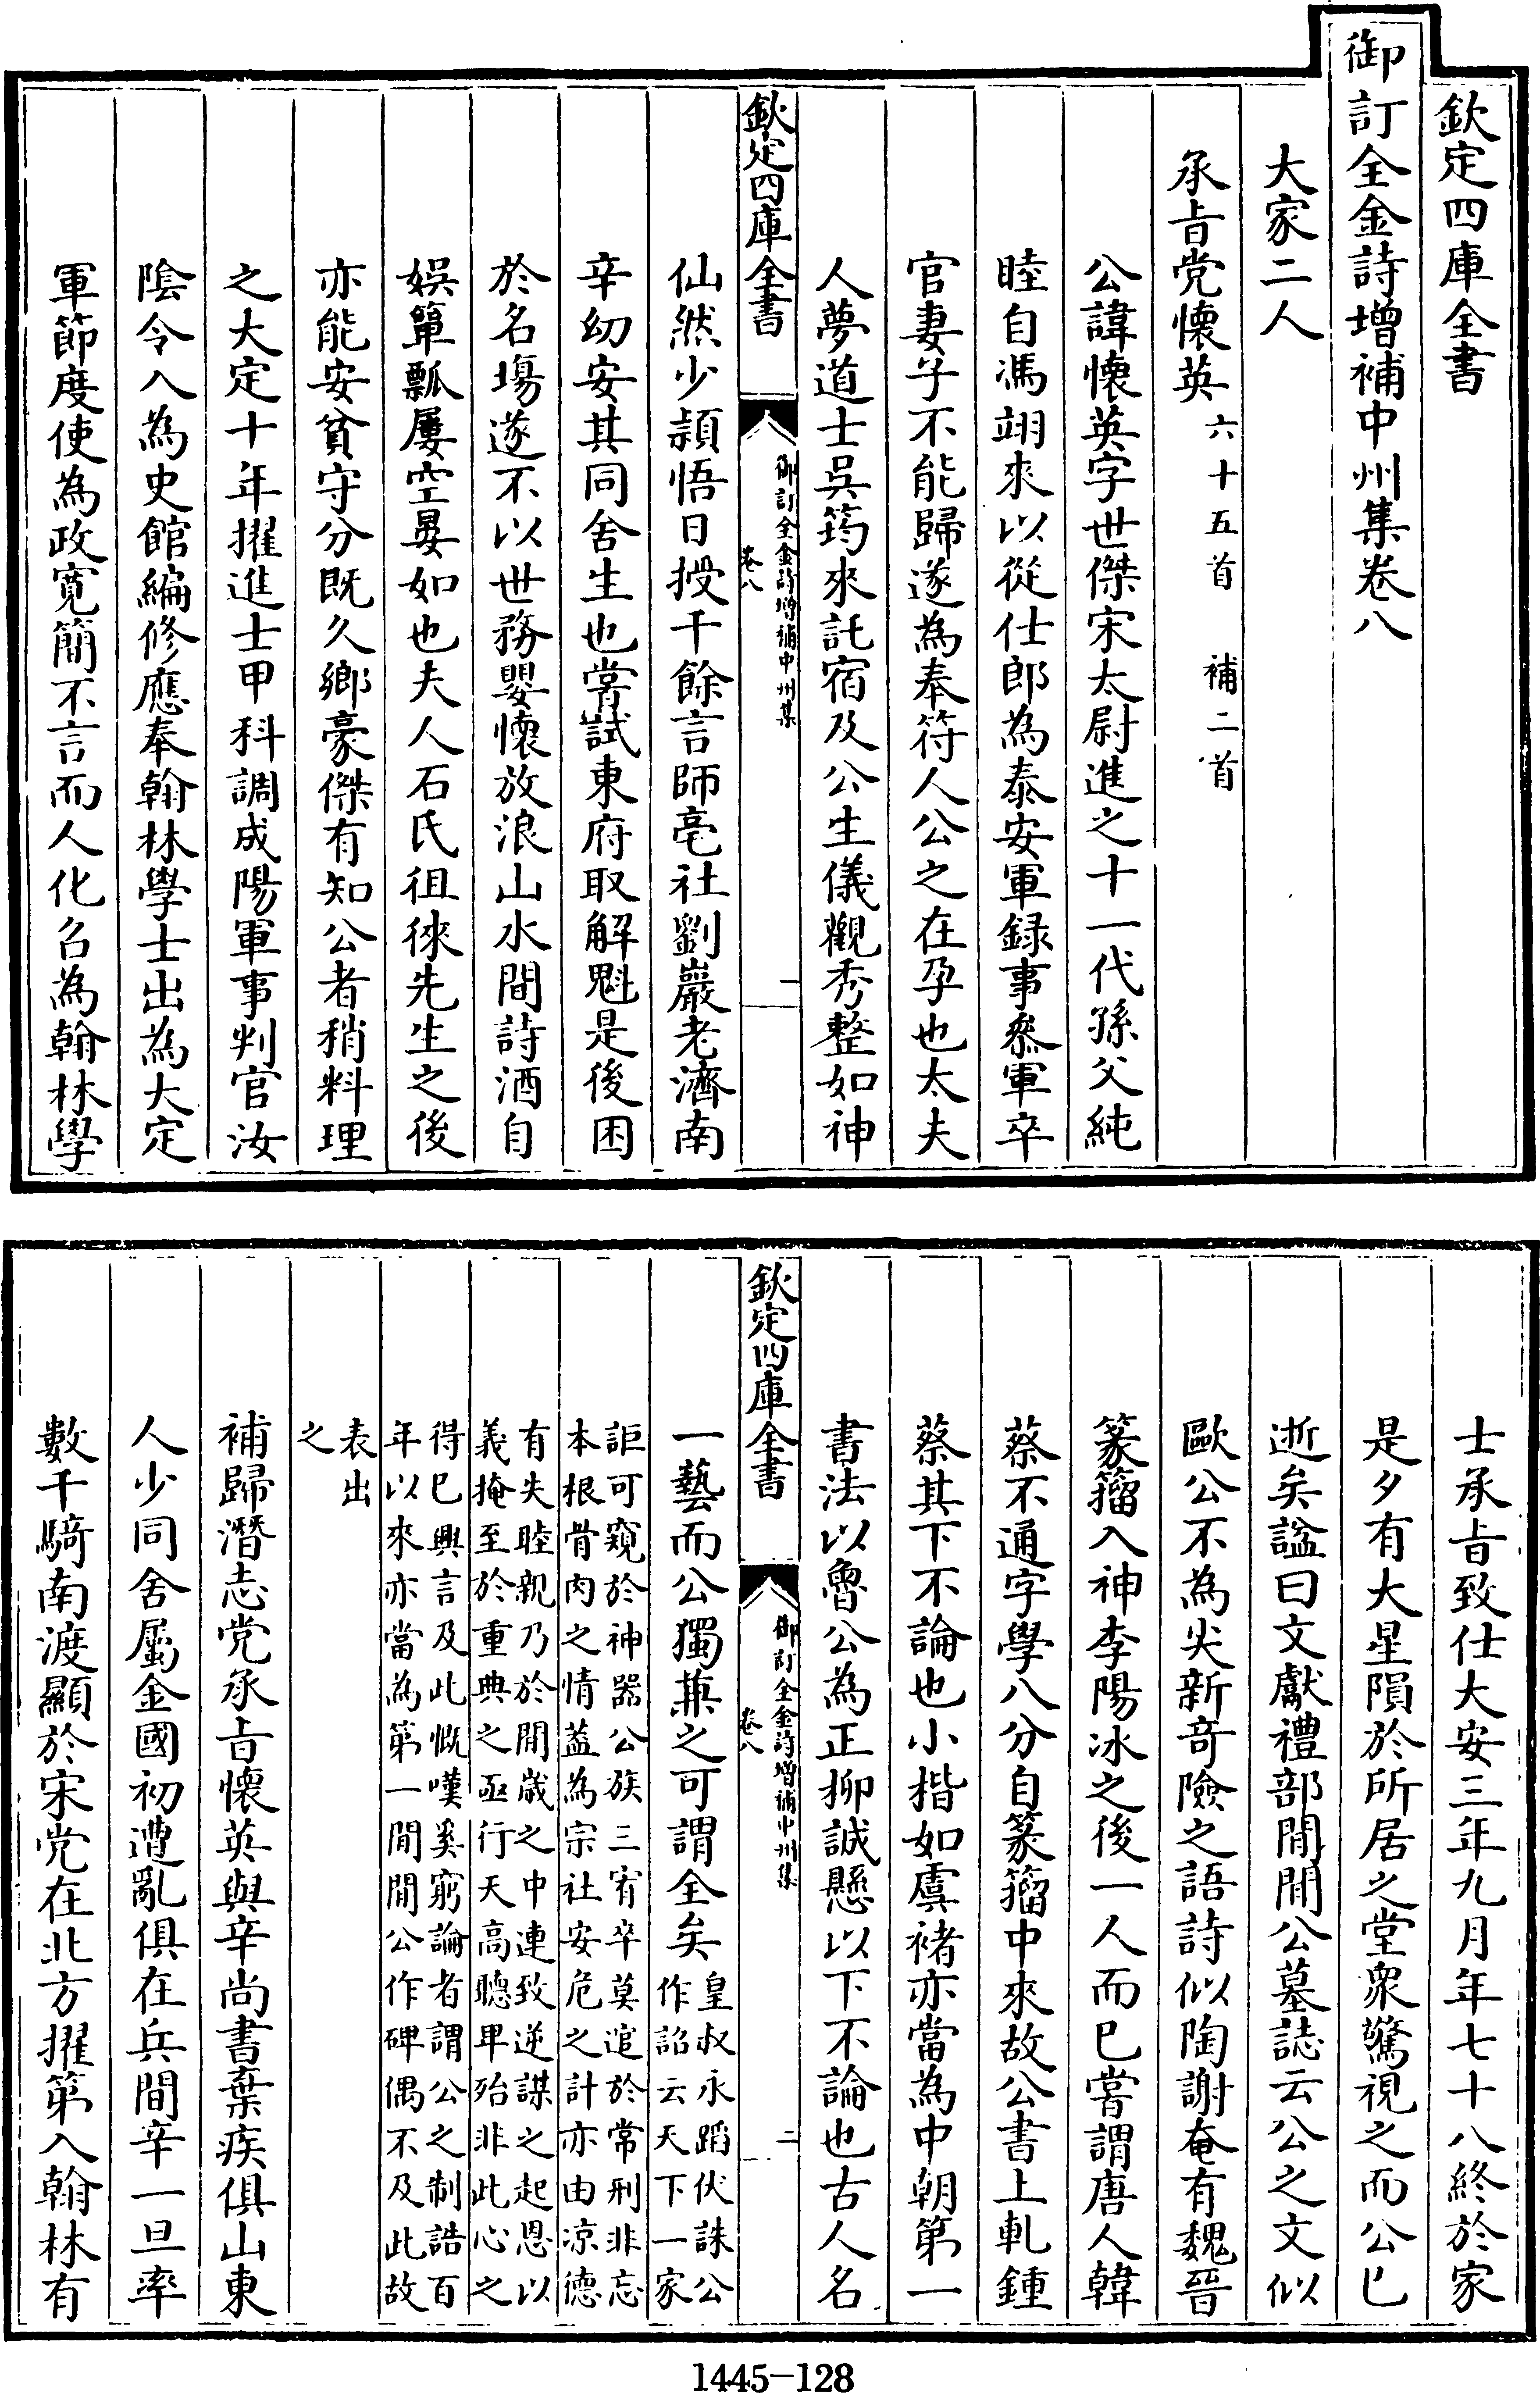 欽定四庫全書
御訂全金詩增補中州集卷八
大家二人
承㫖党懷英六十五首 補二首
公諱懷英字世傑宋太尉進之十一代孫父純
睦自馮翊來以從仕郎為泰安軍録事叅軍卒
官妻子不能歸遂為奉符人公之在孕也太夫
人夢道士吳筠來託宿及公生儀觀秀整如神
欽定四庫全書
御訂全金詩增補中州集
卷八
一
仙然少頴悟日授千餘言師亳社劉巖老濟南
辛幼安其同舍生也嘗試東府取解魁是後困
於名場遂不以世務嬰懷放浪山水間詩酒自
娛簞瓢屢空晏如也夫人石氏徂徠先生之後
亦能安貧守分既久鄉豪傑有知公者稍料理
之大定十年擢進士甲科調成陽軍事判官汝
陰令入為史館編修應奉翰林學士出為大定
軍節度使為政寛簡不言而人化召為翰林學
士承㫖致仕大安三年九月年七十八終於家
是夕有大星隕於所居之堂衆驚視之而公已
逝矣諡曰文獻禮部閒閒公墓誌云公之文似
歐公不為尖新竒險之語詩似陶謝奄有魏晉
篆籀入神李陽冰之後一人而已嘗謂唐人韓
蔡不通字學八分自篆籀中來故公書上軋鍾
蔡其下不論也小楷如虞褚亦當為中朝第一
書法以魯公為正柳誠懸以下不論也古人名
欽定四庫全書
御訂全金詩增補中州集
卷八
二
一藝而公獨兼之可謂全矣皇叔永蹈伏誅公
作詔云天下一家
詎可窺於神器公族三宥卒莫逭於常刑非忘
本根骨肉之情葢為宗社安危之計亦由凉德
有失睦親乃於閒歲之中連致逆謀之起恩以
義掩至於重典之亟行天高聽卑殆非此心之
得已興言及此慨嘆奚窮論者謂公之制誥百
年以來亦當為第一閒閒公作碑偶不及此故
表出
之
補歸潛志党承㫖懷英與辛尚書棄疾俱山東
人少同舍屬金國初遭亂俱在兵間辛一旦率
數千騎南渡顯於宋党在北方擢第入翰林有
1445-128